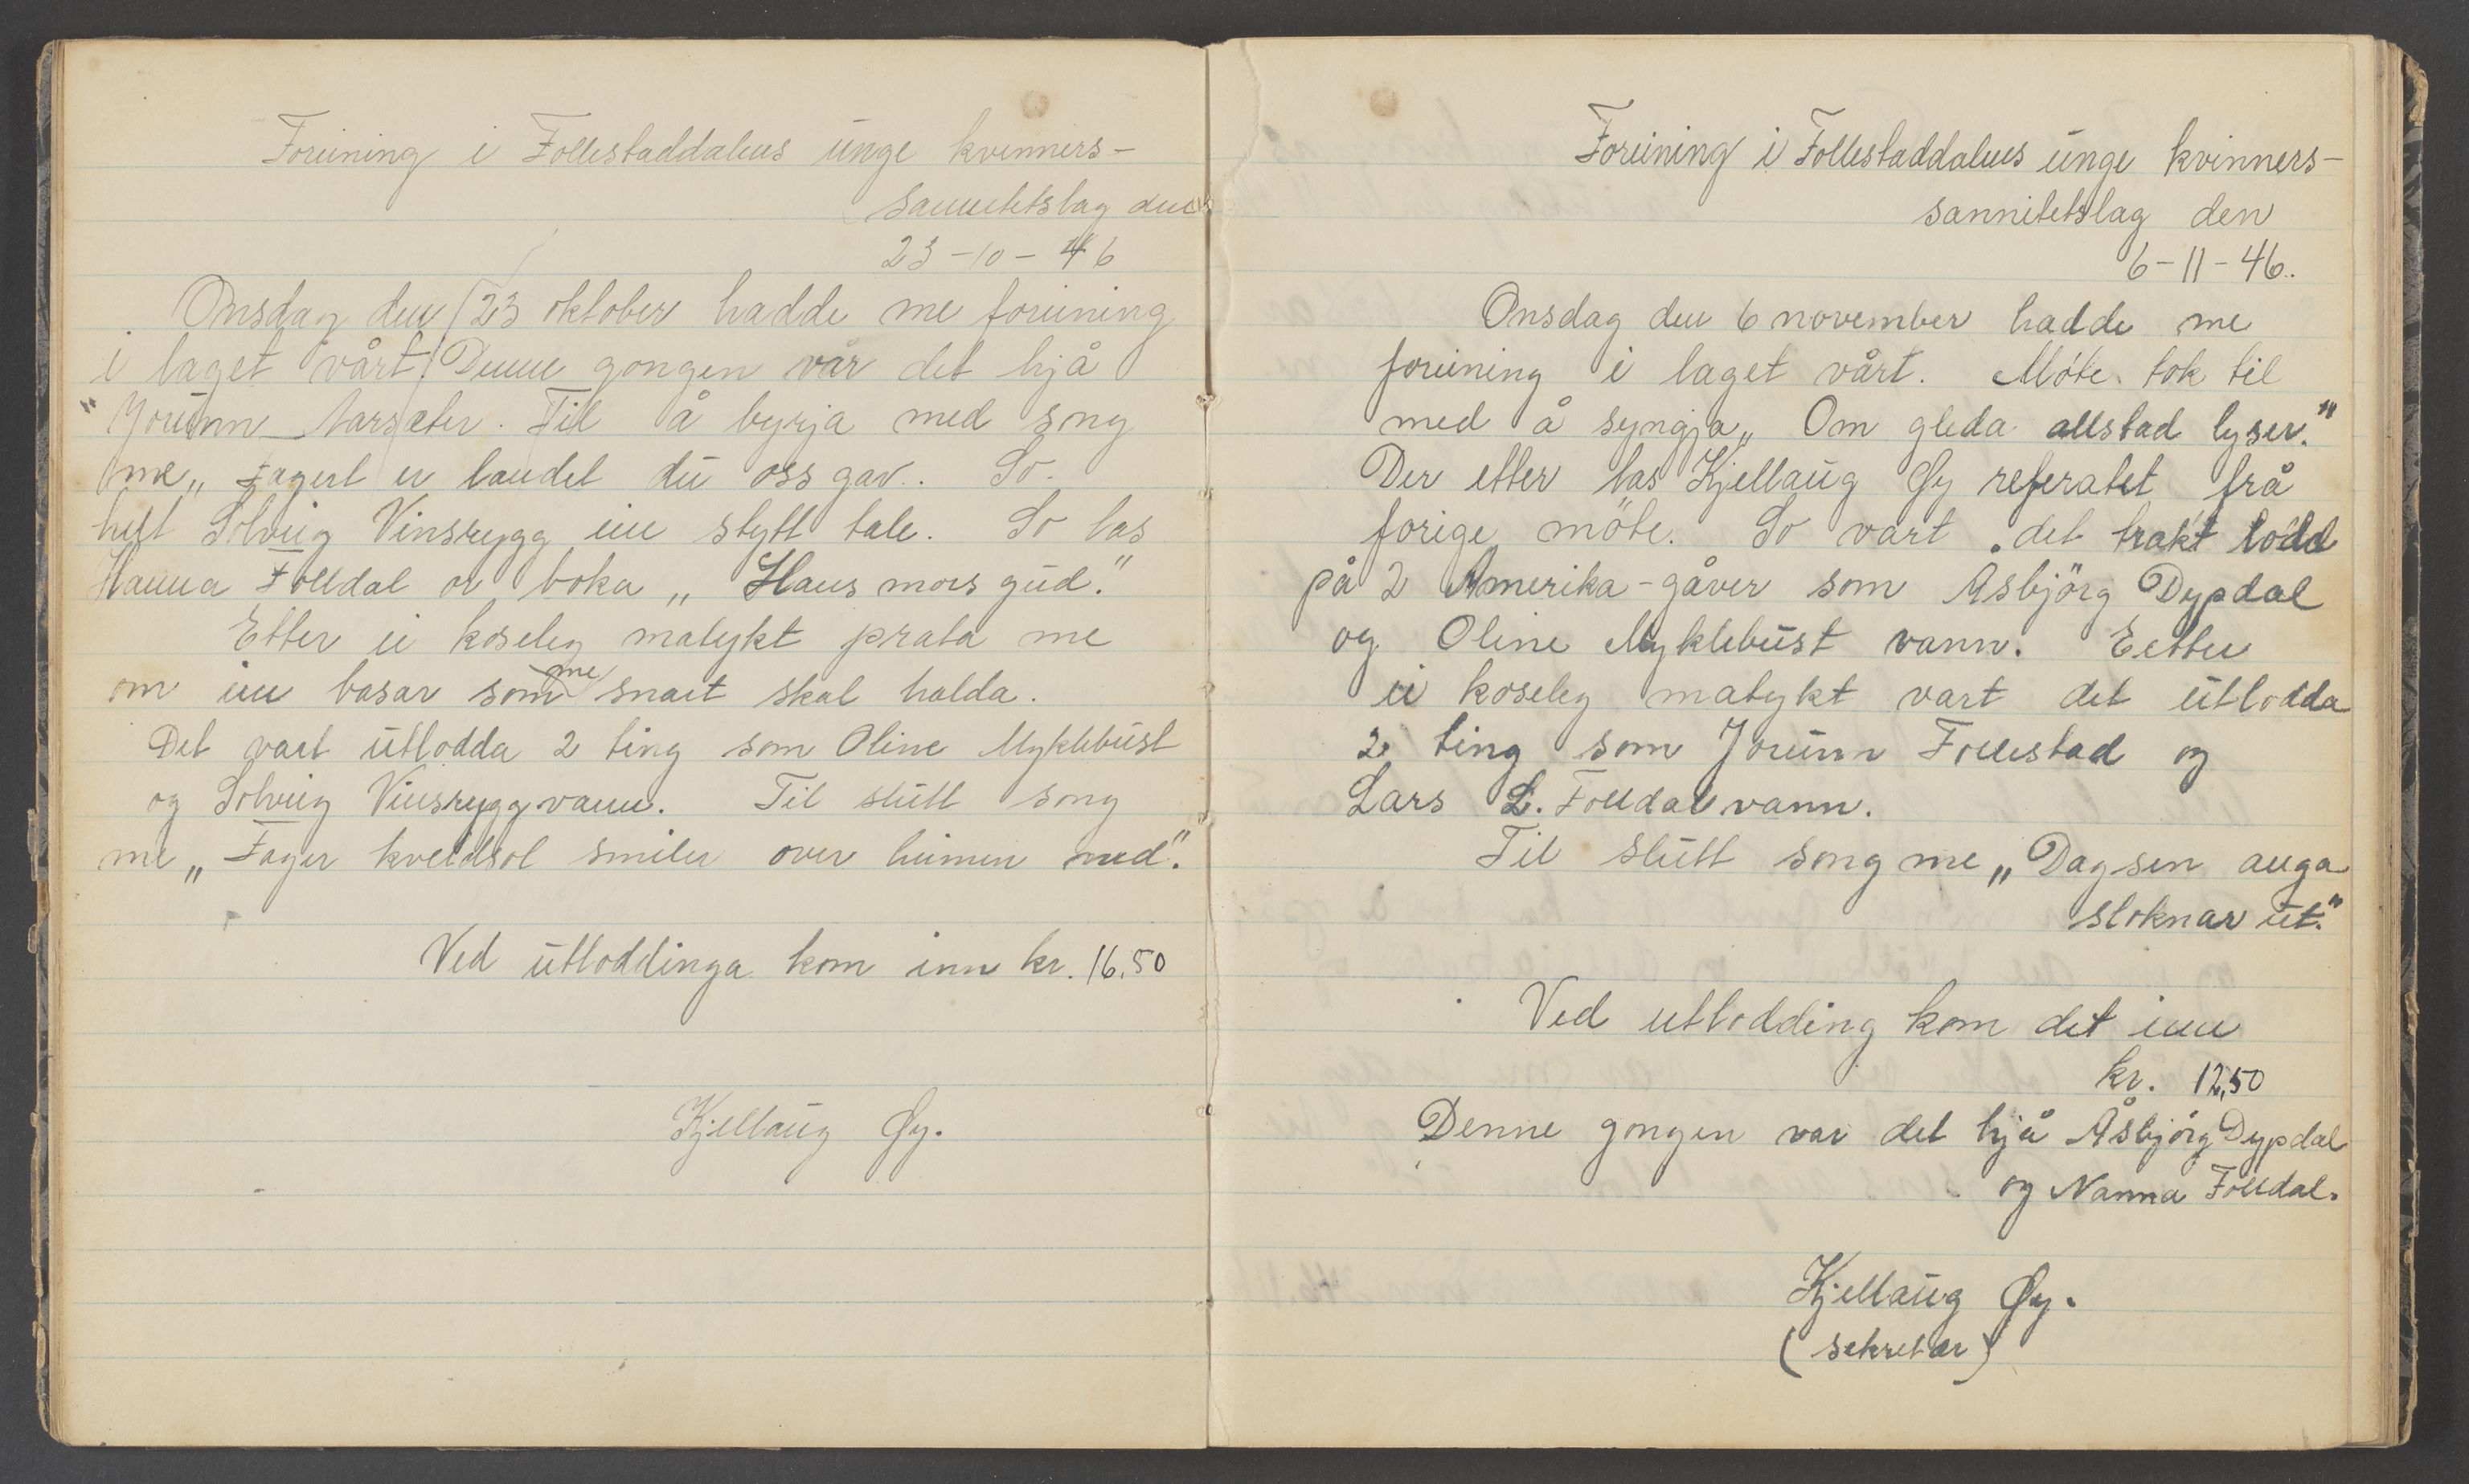 Foreining i Follestaddalens unge kvenners-
sanitetslag den
23-10-46
Onsdag den 23 oktober hadde me foreining
i laget vårt. Denne gongen var det hjå
Jorunn Aarsæter. Til å byrja med song
me „Fagert er landet du oss gav.. So
helt Solveig Vinsrygg ein stytt tale. So las
Nanna Folldal or boka „Hans mors gud."
Etter ei koseleg matykt prata me
om ein basar som me snart skal halda.
Det vart utlodda 2 ting som Oline Myklebust
og Solveig Vinsrygg vann. Til slutt song
me „Fager kveldsol smiler over heimen ned".
Ved utloddinga kom inn kr. 16.50
Kjellaug Øy.
Foreining i Follestaddalens unge kvinners-
sannitetslag den
6-11-46.
Onsdag den 6 november hadde me
foreining i laget vårt. Møte tok til
med å syngja „Om gleda allstad lyser."
Der etter las Kjellaug Øy referatet frå
forige möte. So vart det trakt lodd
på 2 Amerika-gåver som Asbjörg Dypdal
og Oline Myklebust vann. Eetter
ei koseleg matykt vart det utlodda
2 ting som Jorunn Follestad og
Lars L. Folldal vann.
Til slutt song me „Dagsen auga
sloknar ut."
Ved utlodding kom det inn
kr. 12,50
Denne gongen var det hjå Åsbjórg Dypdal
og Nanna Folldal.
Kjellaug Øy.
(sekretær)